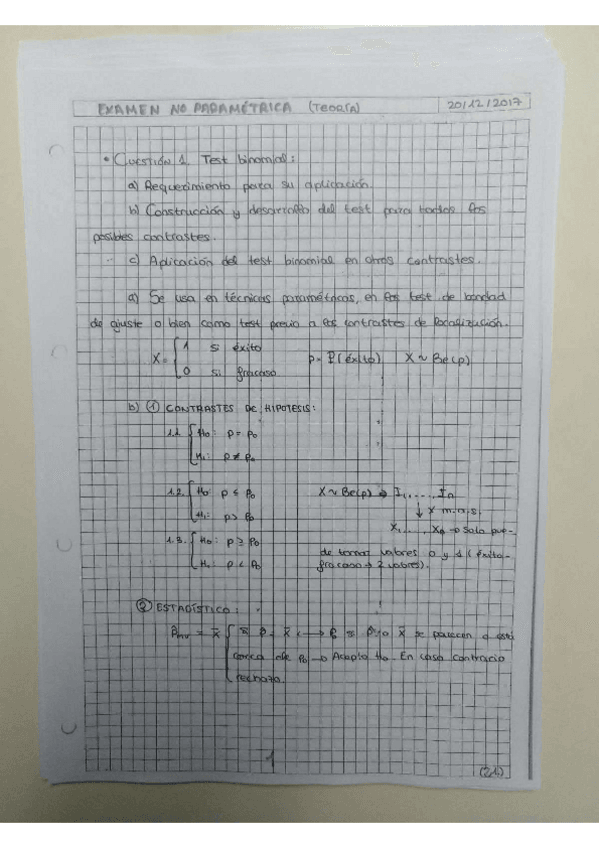 EXAMEN NO PARAMÉTRICA (TEORÍA) 20/12/2017
• CUESTIÓN 1. Test binomial:
a) Requerimiento para su aplicación.
b) Construcción y desarrollo del test para todos los
posibles contrastes.
c) Aplicación del test binomial en otros contrastes.
a) Se usa en técnicas paramétricos, en los test de bondad
de ajuste o bien como test previo a los contrastes de localización.
X = { 1 si éxito
0 si fracaso p = P(éxito) X ~ Be(p)
b) ① CONTRASTES DE HIPOTESIS:
1.1. { H0: p = p0
H1: p ≠ p0
1.2. { H0: p ≤ p0 X ~ Be(p) → I1, ..., In
H1: p > p0 ↓ x m.a.s.
1.3. { H0: p ≥ p0 X1, ..., Xn → Solo pue-
H1: p < p0 de tomar valores 0 y 1 (éxito-
fracaso → 2 valores).
② ESTADÍSTICO:
p̂mv = x̄ x̄ se parecen o está
cerca de p0 → Acepto H0. En caso contrario
rechazo.
1
(21)